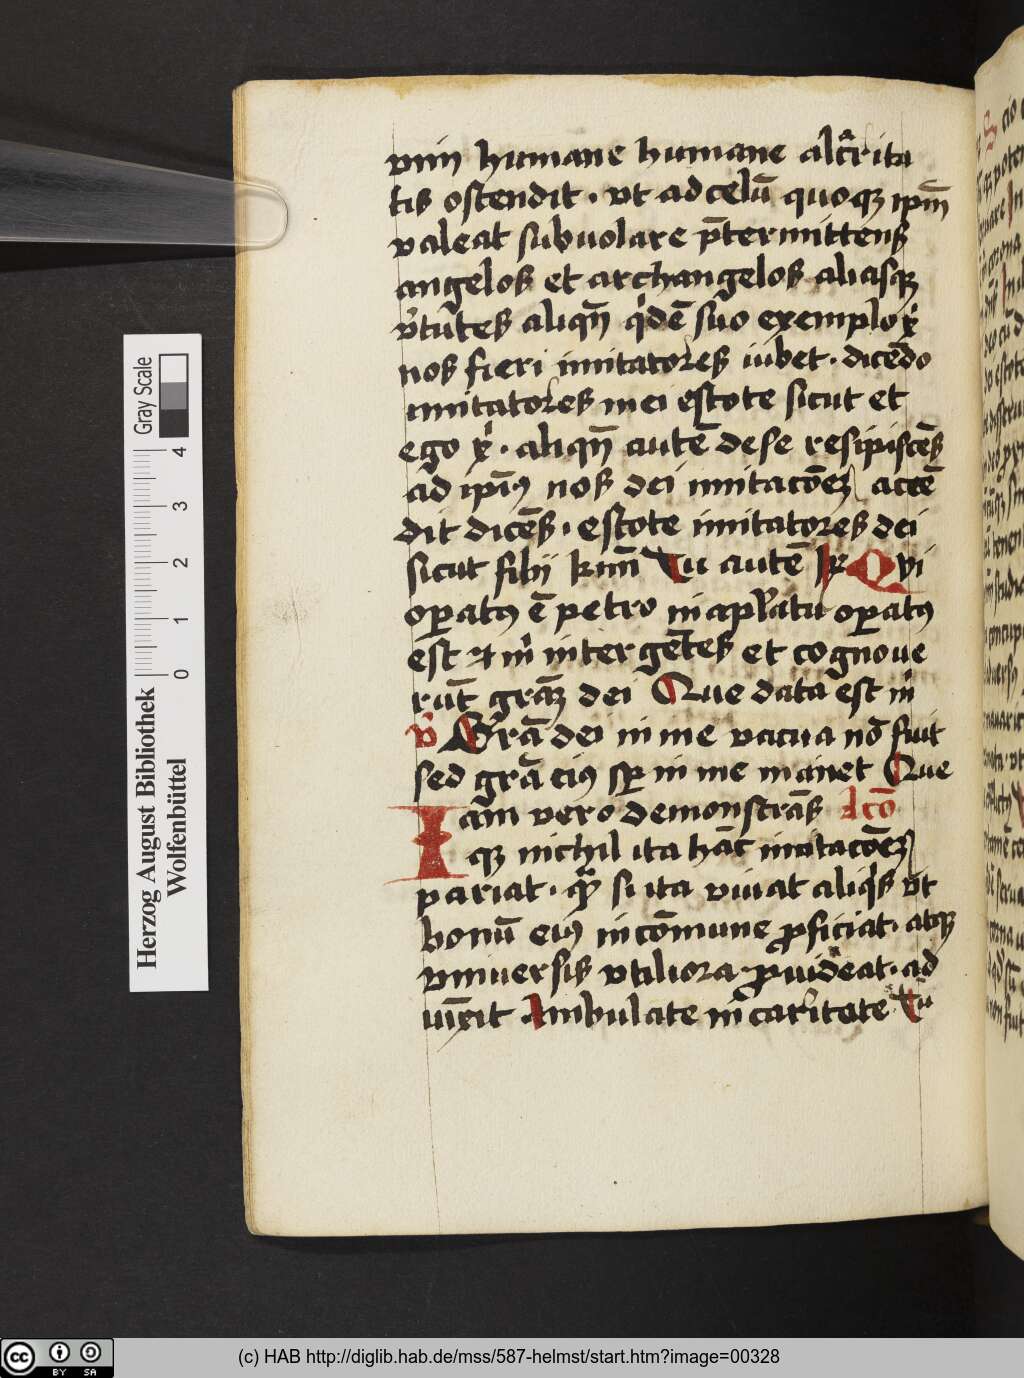 vim humane humane alt̾rita
tis ostendit · vt ad celū quoqꝫ ipm̄
valeat subuolare p̄termittens
angelos et archangelos aliasqꝫ
v̾tutes aliqn̄ q̾dē suo exemplo xp̄i
nos fieri imitatores iubet · dicēdo
imitatores mei estote sicut et
ego xp̄i · aliqn̄ autē de se resipiscēs
ad ipīꝰ nos dei imitacōeꝫ accē
dit dicēs · estote imitatores dei
sicut filij kr̄imi Tu autē R̄ Qvi
oꝑatꝰ ē petro in apl̄atu oꝑatꝰ
est ⁊ m̄ inter gētes et cognoue
rūt grāꝫ dei Que data est m̄
v̾ Grā dei in me vacua nō fuit
sed grā eiꝰ sꝑ in me manet Que
Iam vero demonstrās lcō
qꝫ nichil ita hāc imitacōeꝫ
pariat · qꝫ si ita viuat aliqͥs vt
bonū eiꝰ in cōmune ꝓficiat · atqꝫ
vniuersis vtiliora ꝓuideat · ad
iūxit Ambulate in caritate Tu
Gray Scale
0 1 2 3 4
Herzog August Bibliothek
Wolfenbüttel
(c) HAB http://diglib.hab.de/mss/587-helmst/start.htm?image=00328
cc BY SA